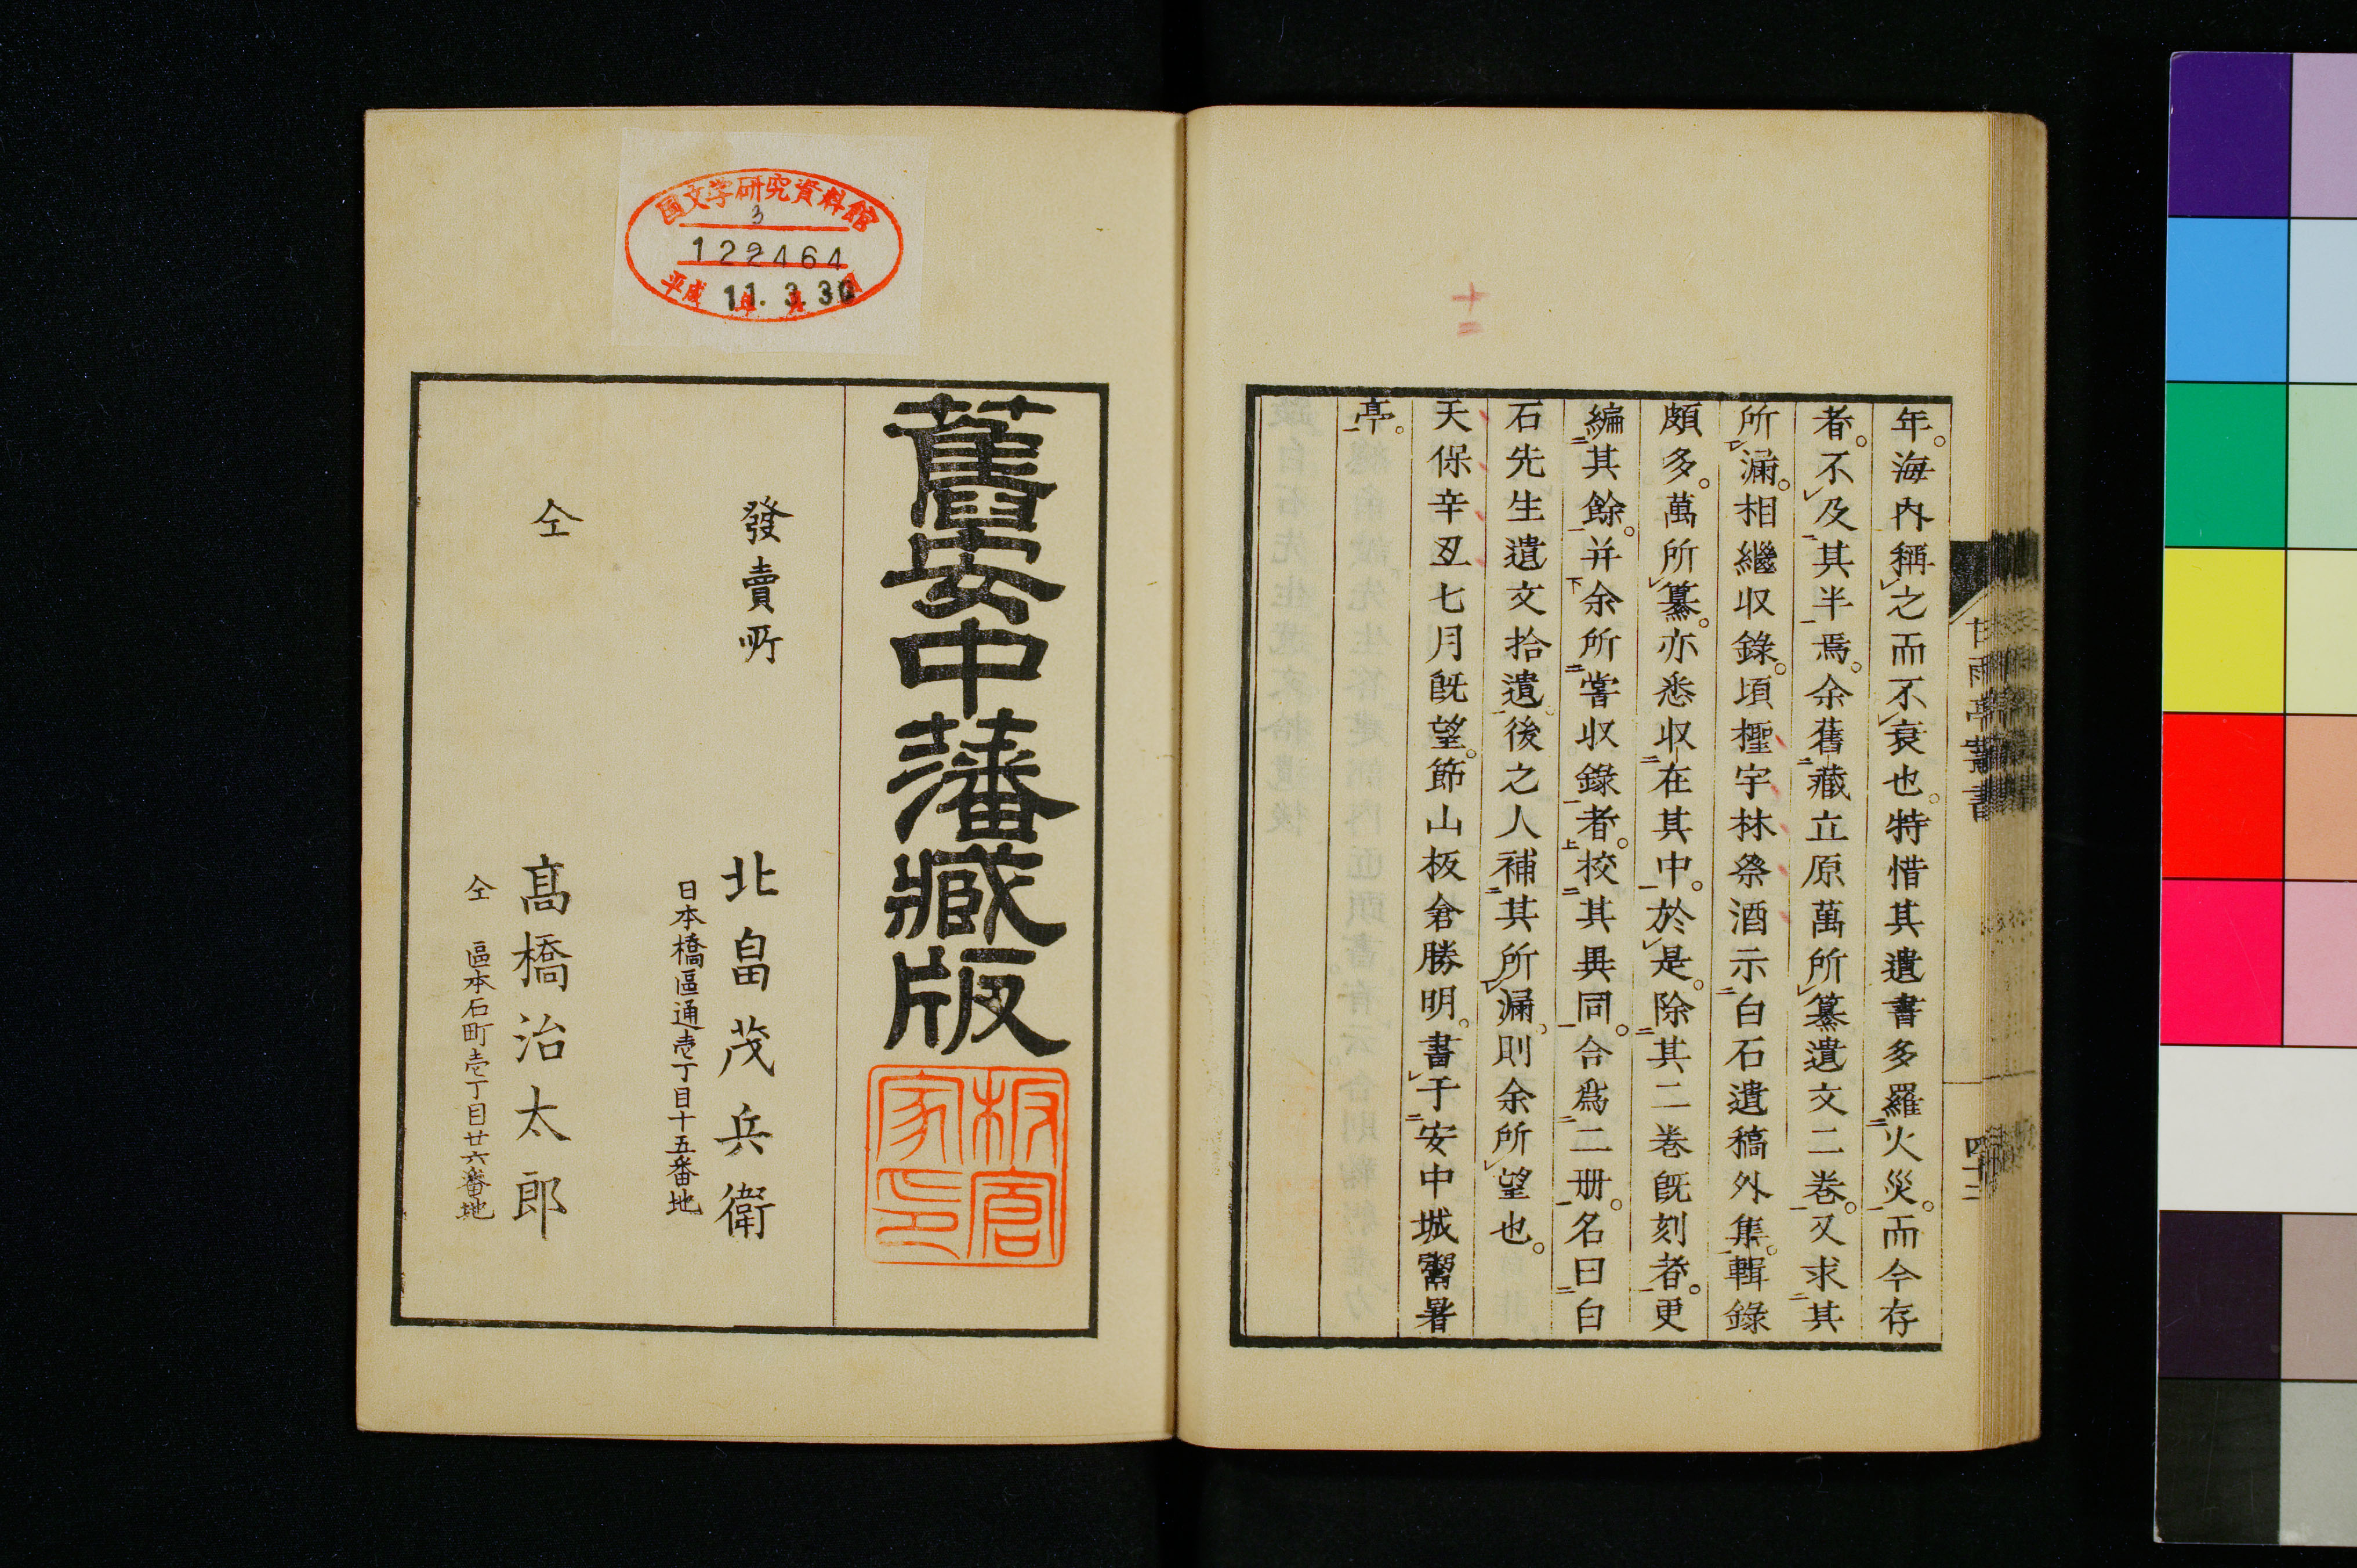 年。海內稱之而不衰也。特惜其遺書多羅火災。而今存
者。不及其半焉。余舊藏立原萬所纂遺文二卷。又求其
所漏。相繼收錄。頃檉宇林祭酒示白石遺稿外集。輯錄
頗多。萬所纂。亦悉收在其中。於是。除其二卷既刻者。更
編其餘。并余所嘗收錄者。校其異同。合爲二册。名曰白
石先生遺文拾遺。後之人補其所漏。則余所望也。
天保辛丑七月既望。節山板倉勝明。書于安中城鬻暑
亭。
甘雨亭叢書
四十二
十二
舊安中藩藏版
板倉家印
發賣所
北畠茂兵衛
日本橋區通壱丁目十五番地
仝
髙橋治太郎
仝 區本石町壱丁目廿六番地
國文学研究資料館
3
122464
平成 11. 3. 30